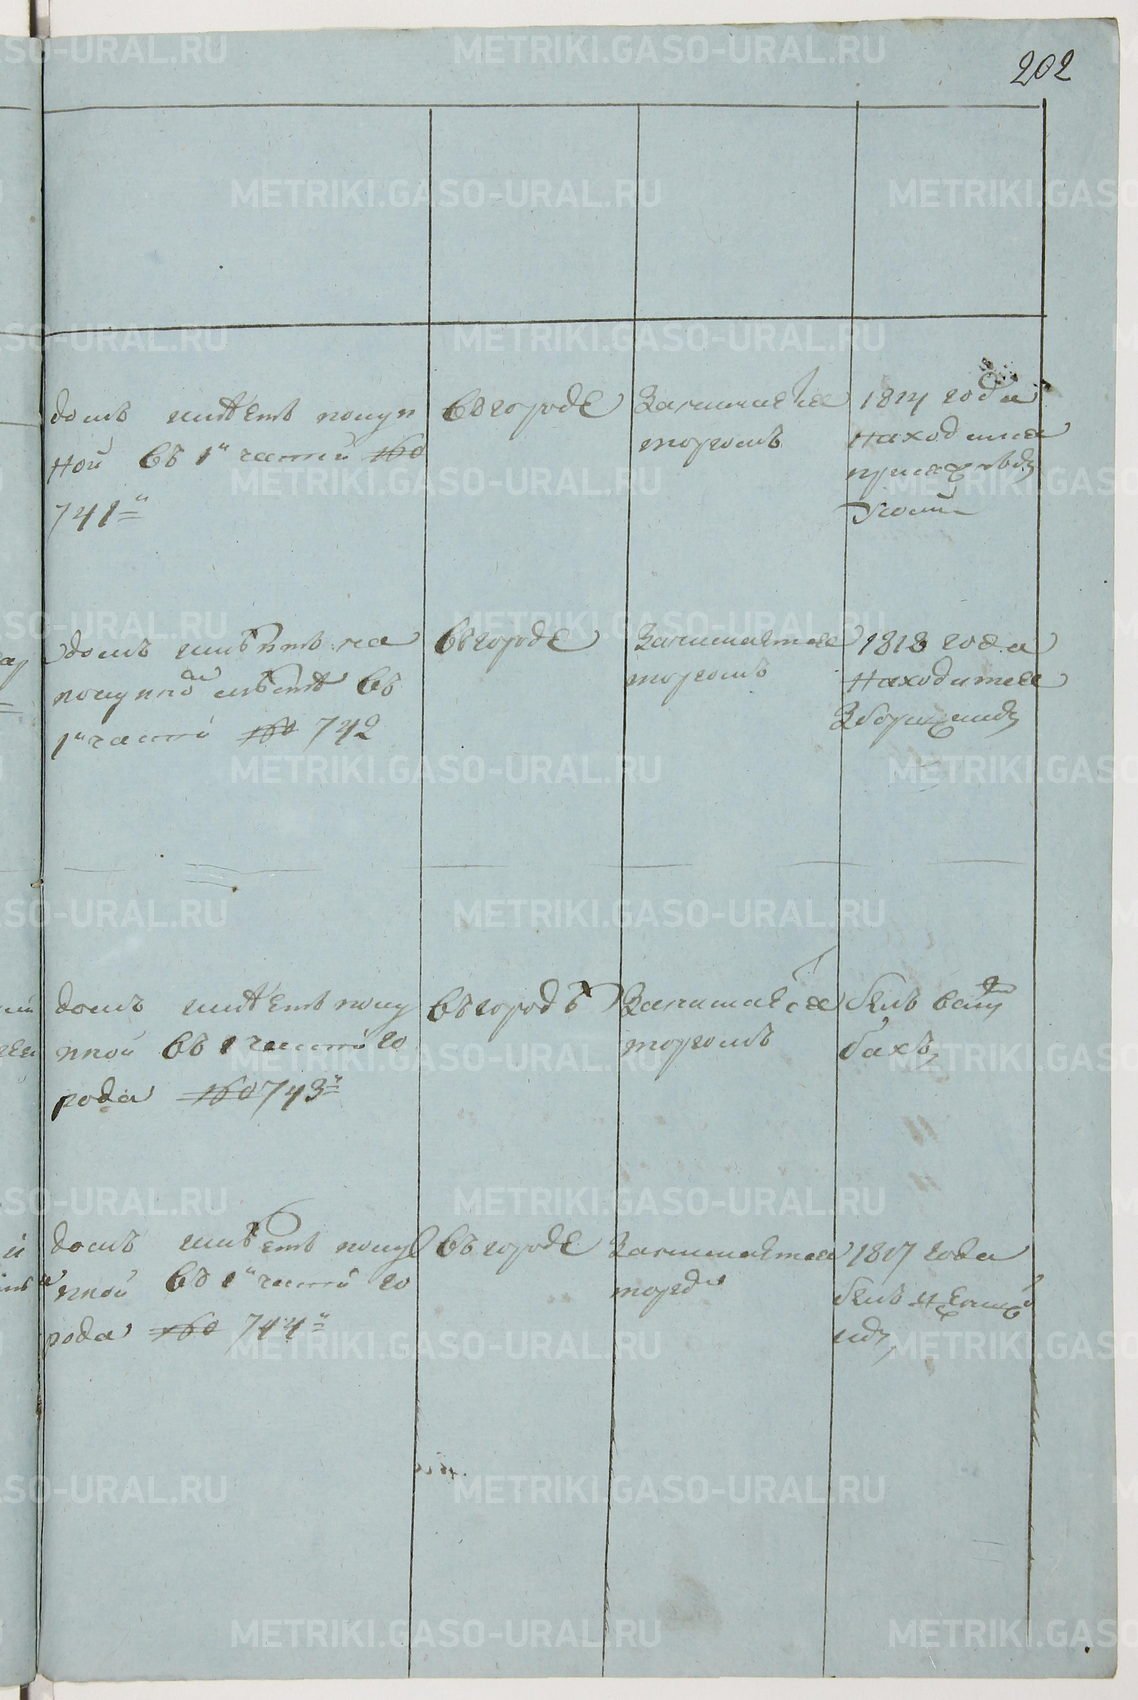 202
домъ имѣетъ покуп
ной въ 1й части №
741й
въ городе
Занимается
торгомъ
1814 года
находился
при
домъ имѣетъ на
покупной местѣ въ
1й части № 742
въ городе
Занимается
торгомъ
1818 года
находится
домъ имѣетъ поку
пной въ 1 части го
рода № 743й
въ городѣ
Занимается
торгомъ
былъ
домъ имѣетъ покуп
пной въ 1й части го
рода № 744й
въ городе
Занимается
торго
1817 года
былъ
METRIKI.GASO-URAL.RU